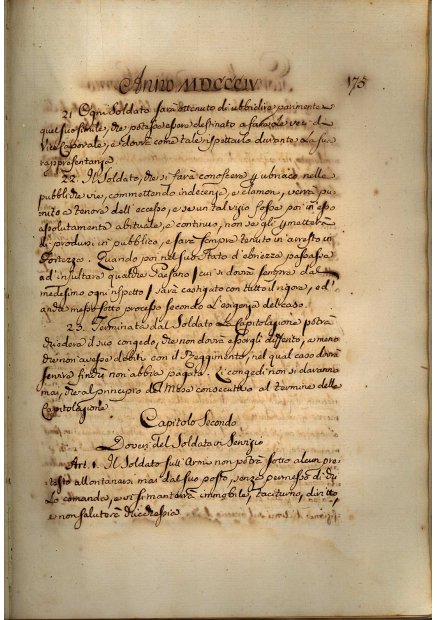 Anno MDCCCIV. 175
21 Ogni Soldato sarà ottenuto di ubbidire parimente a
quel suo simile, che potesse essere destinato a far le veci di
Vice Caporale, e dovrà come tale rispettarlo durante la sua
rappresentanza
22. Il Soldato, che si farà conoscere per ubriaco nelle
pubbliche vie, commettendo indecenze, e clamori, verrà pu-
nito a tenore dell'eccesso, e se un tal vizio fosse poi in esso
assolutamente abituale, e continuo, non se gli permetterà
di prodursi in pubblico, e sarà sempre tenuto in arresto in
Fortezza. Quando poi nel suo stato d'ebriezza passasse
ad insultare qualche Paesano / cui si dovrà sempre dal
medesimo ogni rispetto / sarà castigato con tutto il rigore, ed
anche messo sotto processo secondo l'esigenza del caso.
23. Terminata dal Soldato la Capitolazione potrà
chiedere il suo congedo, che non dovrà essergli disdetto, a meno
che non avesse debiti con il Reggimento, nel qual caso dovrà
servire finchè non abbia pagato. I congedi non si daranno
mai, che al principio del Mese consecutivo al termine della
Capitolazione
Capitolo Secondo
Doveri del Soldato in Servizio
Art. 1. Il Soldato sull'Armi non potrà sotto alcun pre-
testo allontanarsi mai dal suo posto, senza permesso di chi
lo comanda, e vi si manterrà immobile, taciturno, diritto,
e non saluterà chicchessia